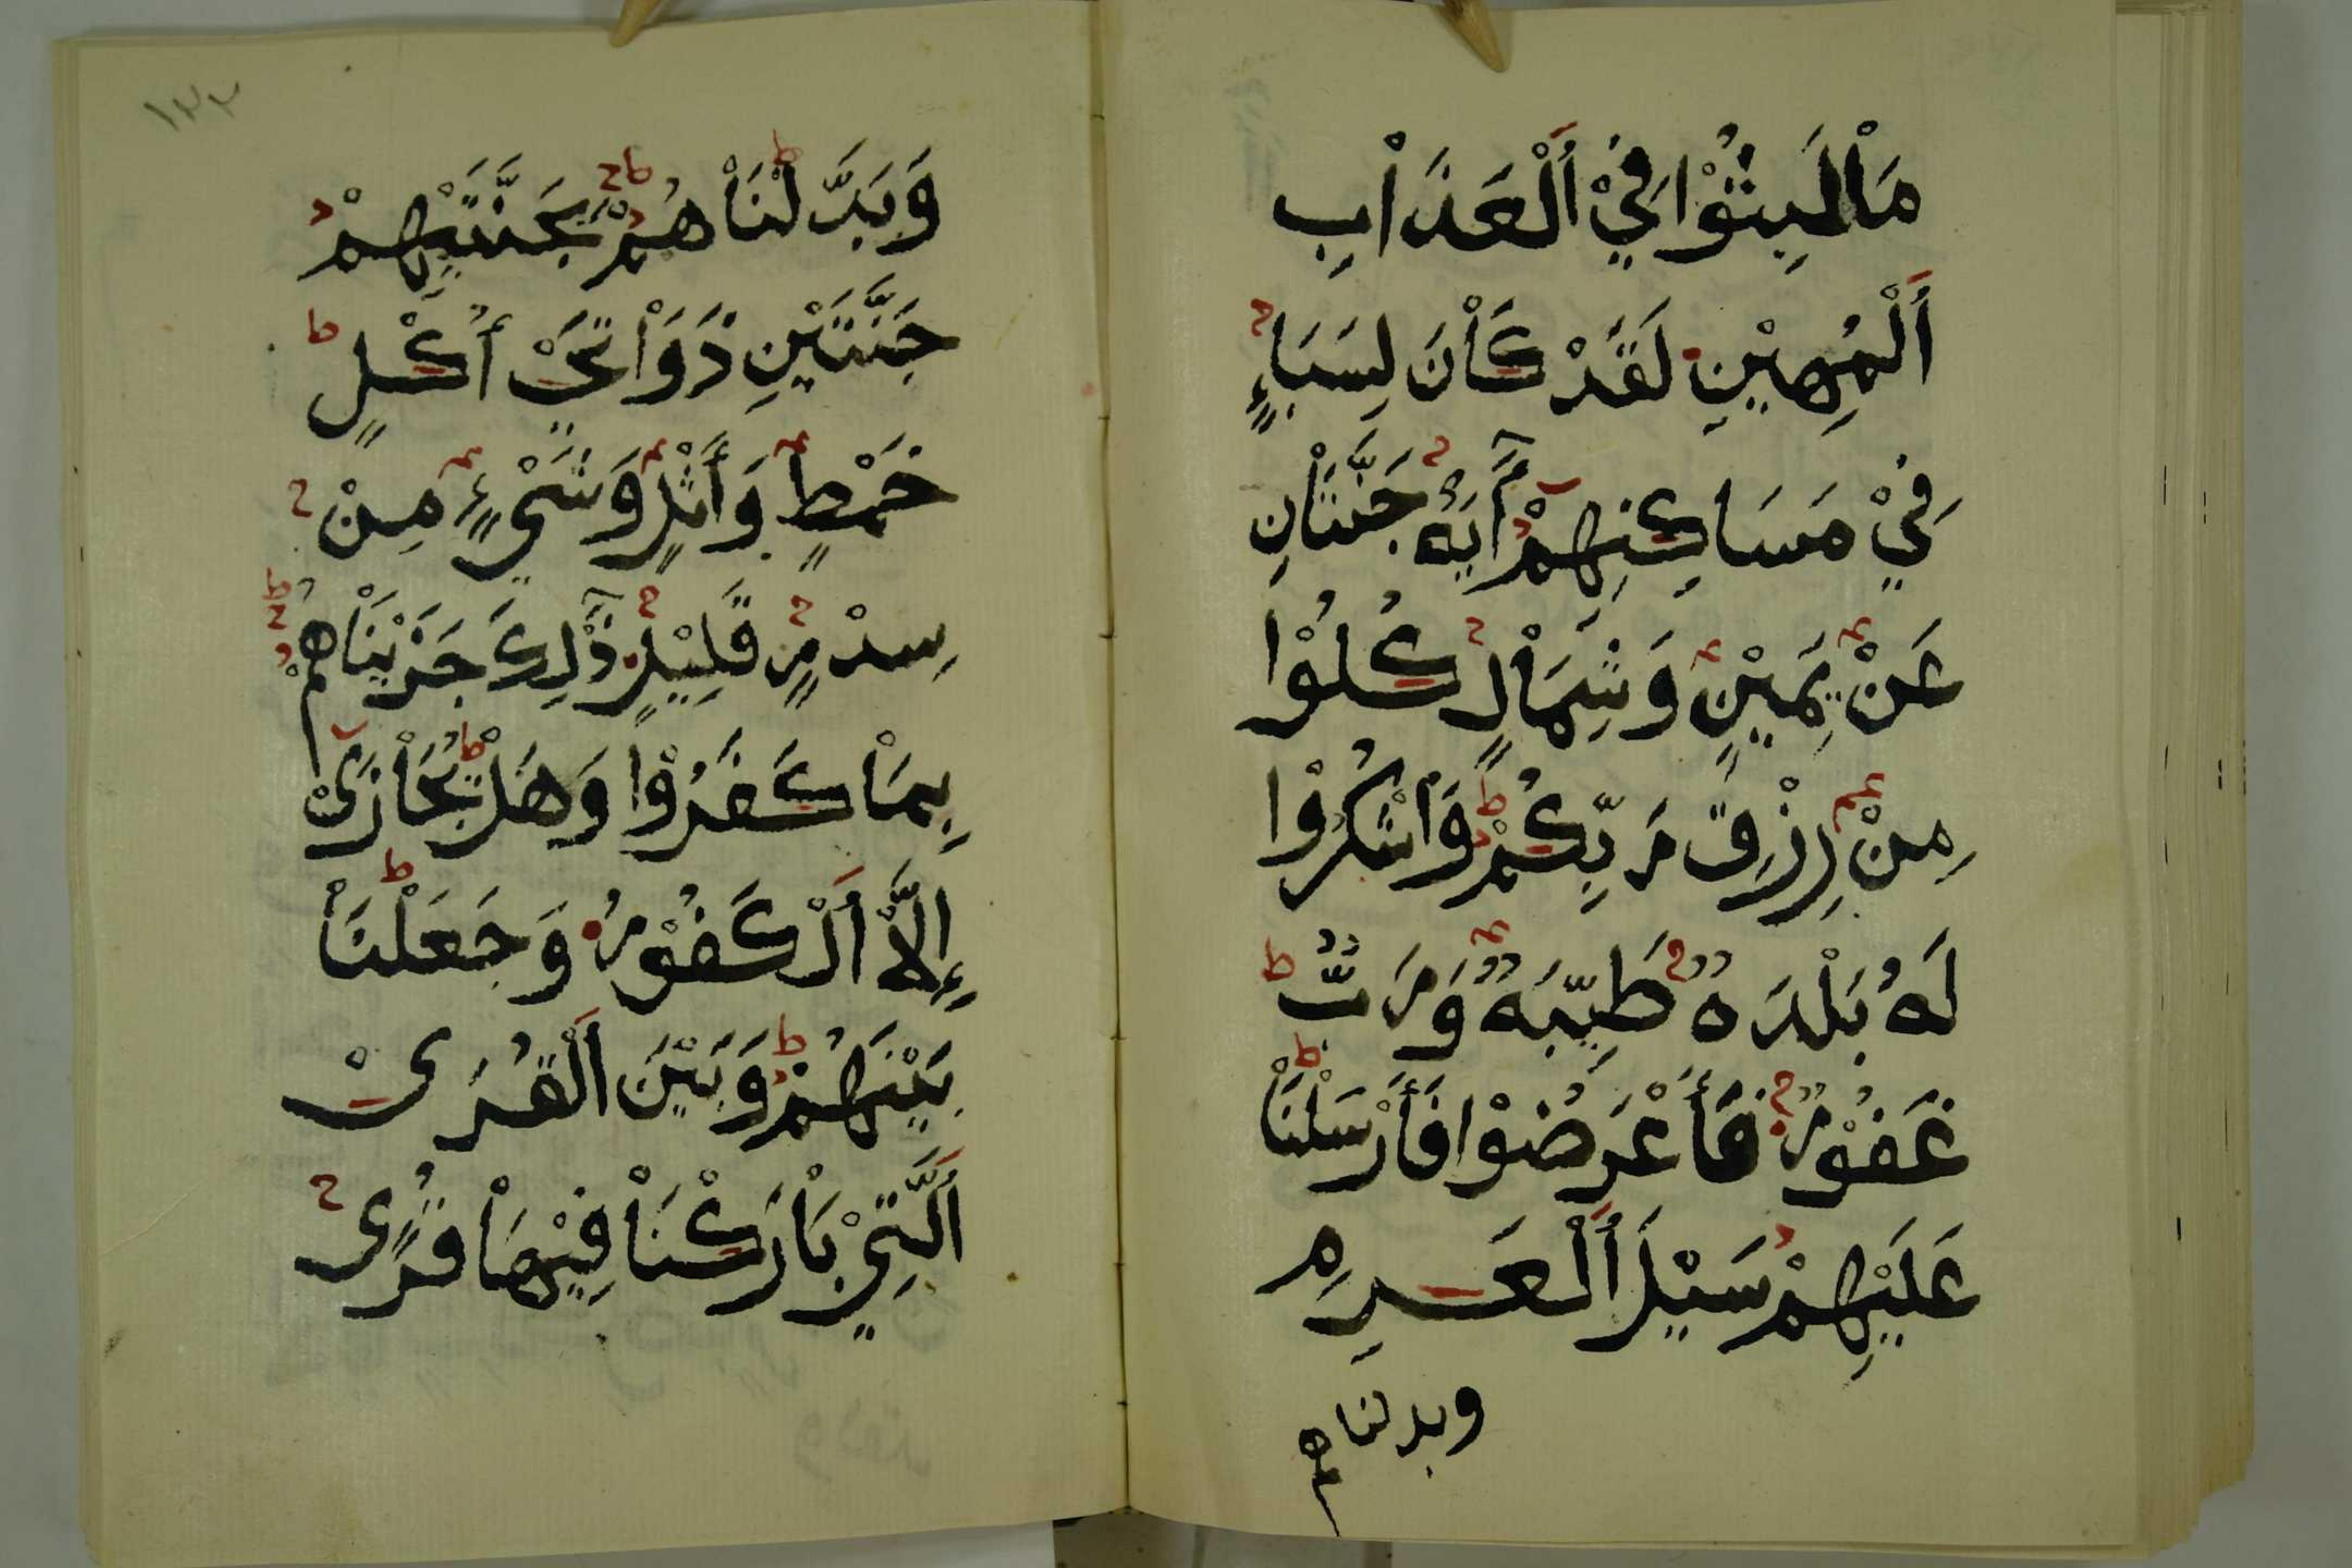 مَاْ لَبِثُوْا فِيْ اَلْعَذَاْبِ
اَلْمُهِيْنِ لَقَدْ كَاْنَ لِسَبَاءٍ
فِيْ مَسَاكِنِهِمْ آيَةٌ جَنَّتَاْنِ
عَنْ يَمِيْنٍ وَشِمَاْلٍ كُلُوْا
مِنْ رِزْقِ رَبِّكُمْ وَاشْكُرُوْا
لَهُ بَلْدَةٌ طَيِّبَةٌ وَرَبٌّ
غَفُوْرٌ فَأَعْرَضُوْا فَأَرْسَلْنَاْ
عَلَيْهِمْ سَيْلَ اَلْعَرِمِ
وبدلناهم
١٢٣
وَبَدَّلْنَاْهُمْ بِجَنَّتَيْهِمْ
جَنَّتَيْنِ ذَوَاْتَيْ أُكْلٍ
خَمْطٍ وَأَثْلٍ وَشَيْءٍ مِنْ
سِدْرٍ قَلِيْلٍ ذَٰلِكَ جَزَيْنَاْهُمْ
بِمَاْ كَفَرُوْا وَهَلْ يُجَاْزَىْ
إِلَّاْ اَلْكَفُوْرُ وَجَعَلْنَاْ
بَيْنَهُمْ وَبَيْنَ اَلْقُرَىْ
اَلَّتِيْ بَاْرَكْنَاْ فِيْهَاْ قُرًى